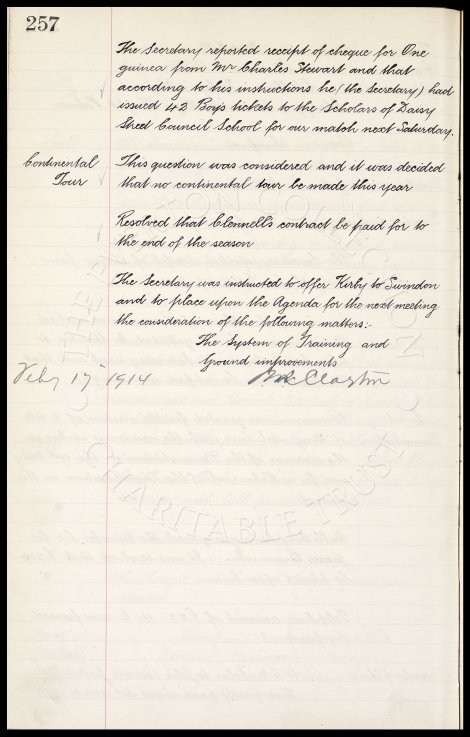 257
The Secretary reported receipt of cheque for One
guinea from Mr Charles Stewart and that
according to his instructions he (the Secretary) had
issued 42 Boys tickets to the Scholars of Daisy
Street Council School for our match next Saturday.
Continental Tour
This question was considered and it was decided
that no continental tour be made this year
Resolved that Clennell's contract be paid for to
the end of the season
The Secretary was instructed to offer Kirby to Swindon
and to place upon the Agenda for the next meeting
the consideration of the following matters:-
The System of Training and
Ground improvements
Feby 17th 1914
CHARITABLE TRUST